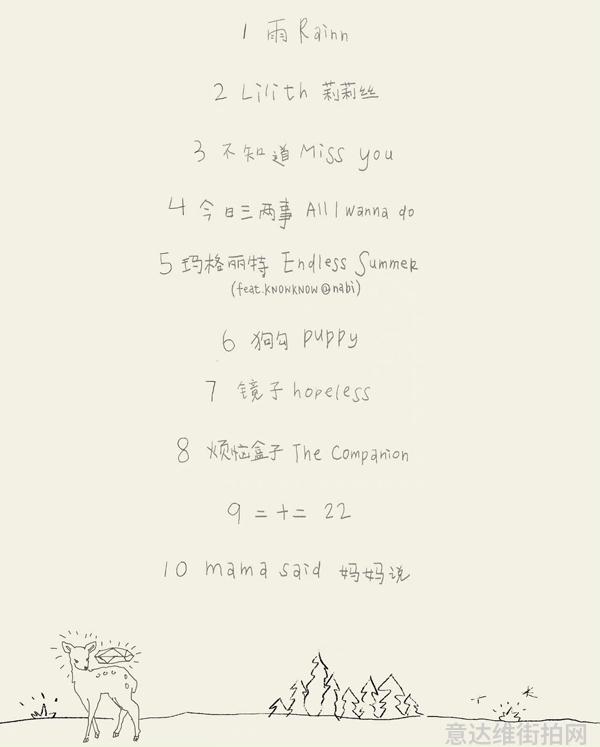 1 雨 Rainn
2 Lilith 莉莉丝
3 不知道 Miss you
4 今日三两事 All I wanna do
5 玛格丽特 Endless Summer
(feat.KNOWKNOW@nabi)
6 狗勾 puppy
7 镜子 hopeless
8 烦恼盒子 The Companion
9 二十二 22
10 mama said 妈妈说
意达维街拍网